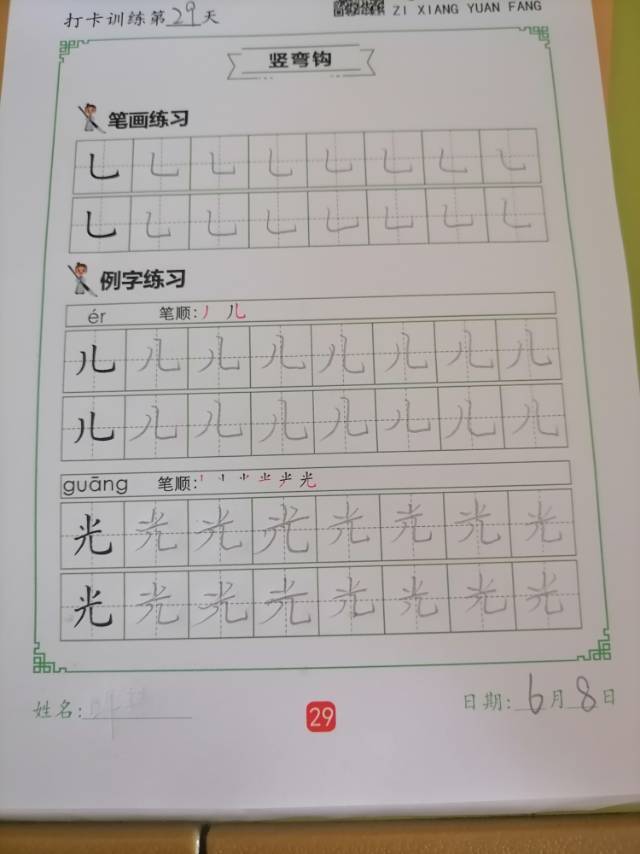 打卡训练第29天
ZI XIANG YUAN FANG
竖弯钩
笔画练习
乚 乚 乚 乚 乚 乚 乚 乚
乚 乚 乚 乚 乚 乚 乚 乚
例字练习
ér 笔顺:丿 儿
儿 儿 儿 儿 儿 儿 儿 儿
儿 儿 儿 儿 儿 儿 儿 儿
guāng 笔顺:
光 光 光 光 光 光 光 光
光 光 光 光 光 光 光 光
姓名:
29
日期:6月8日